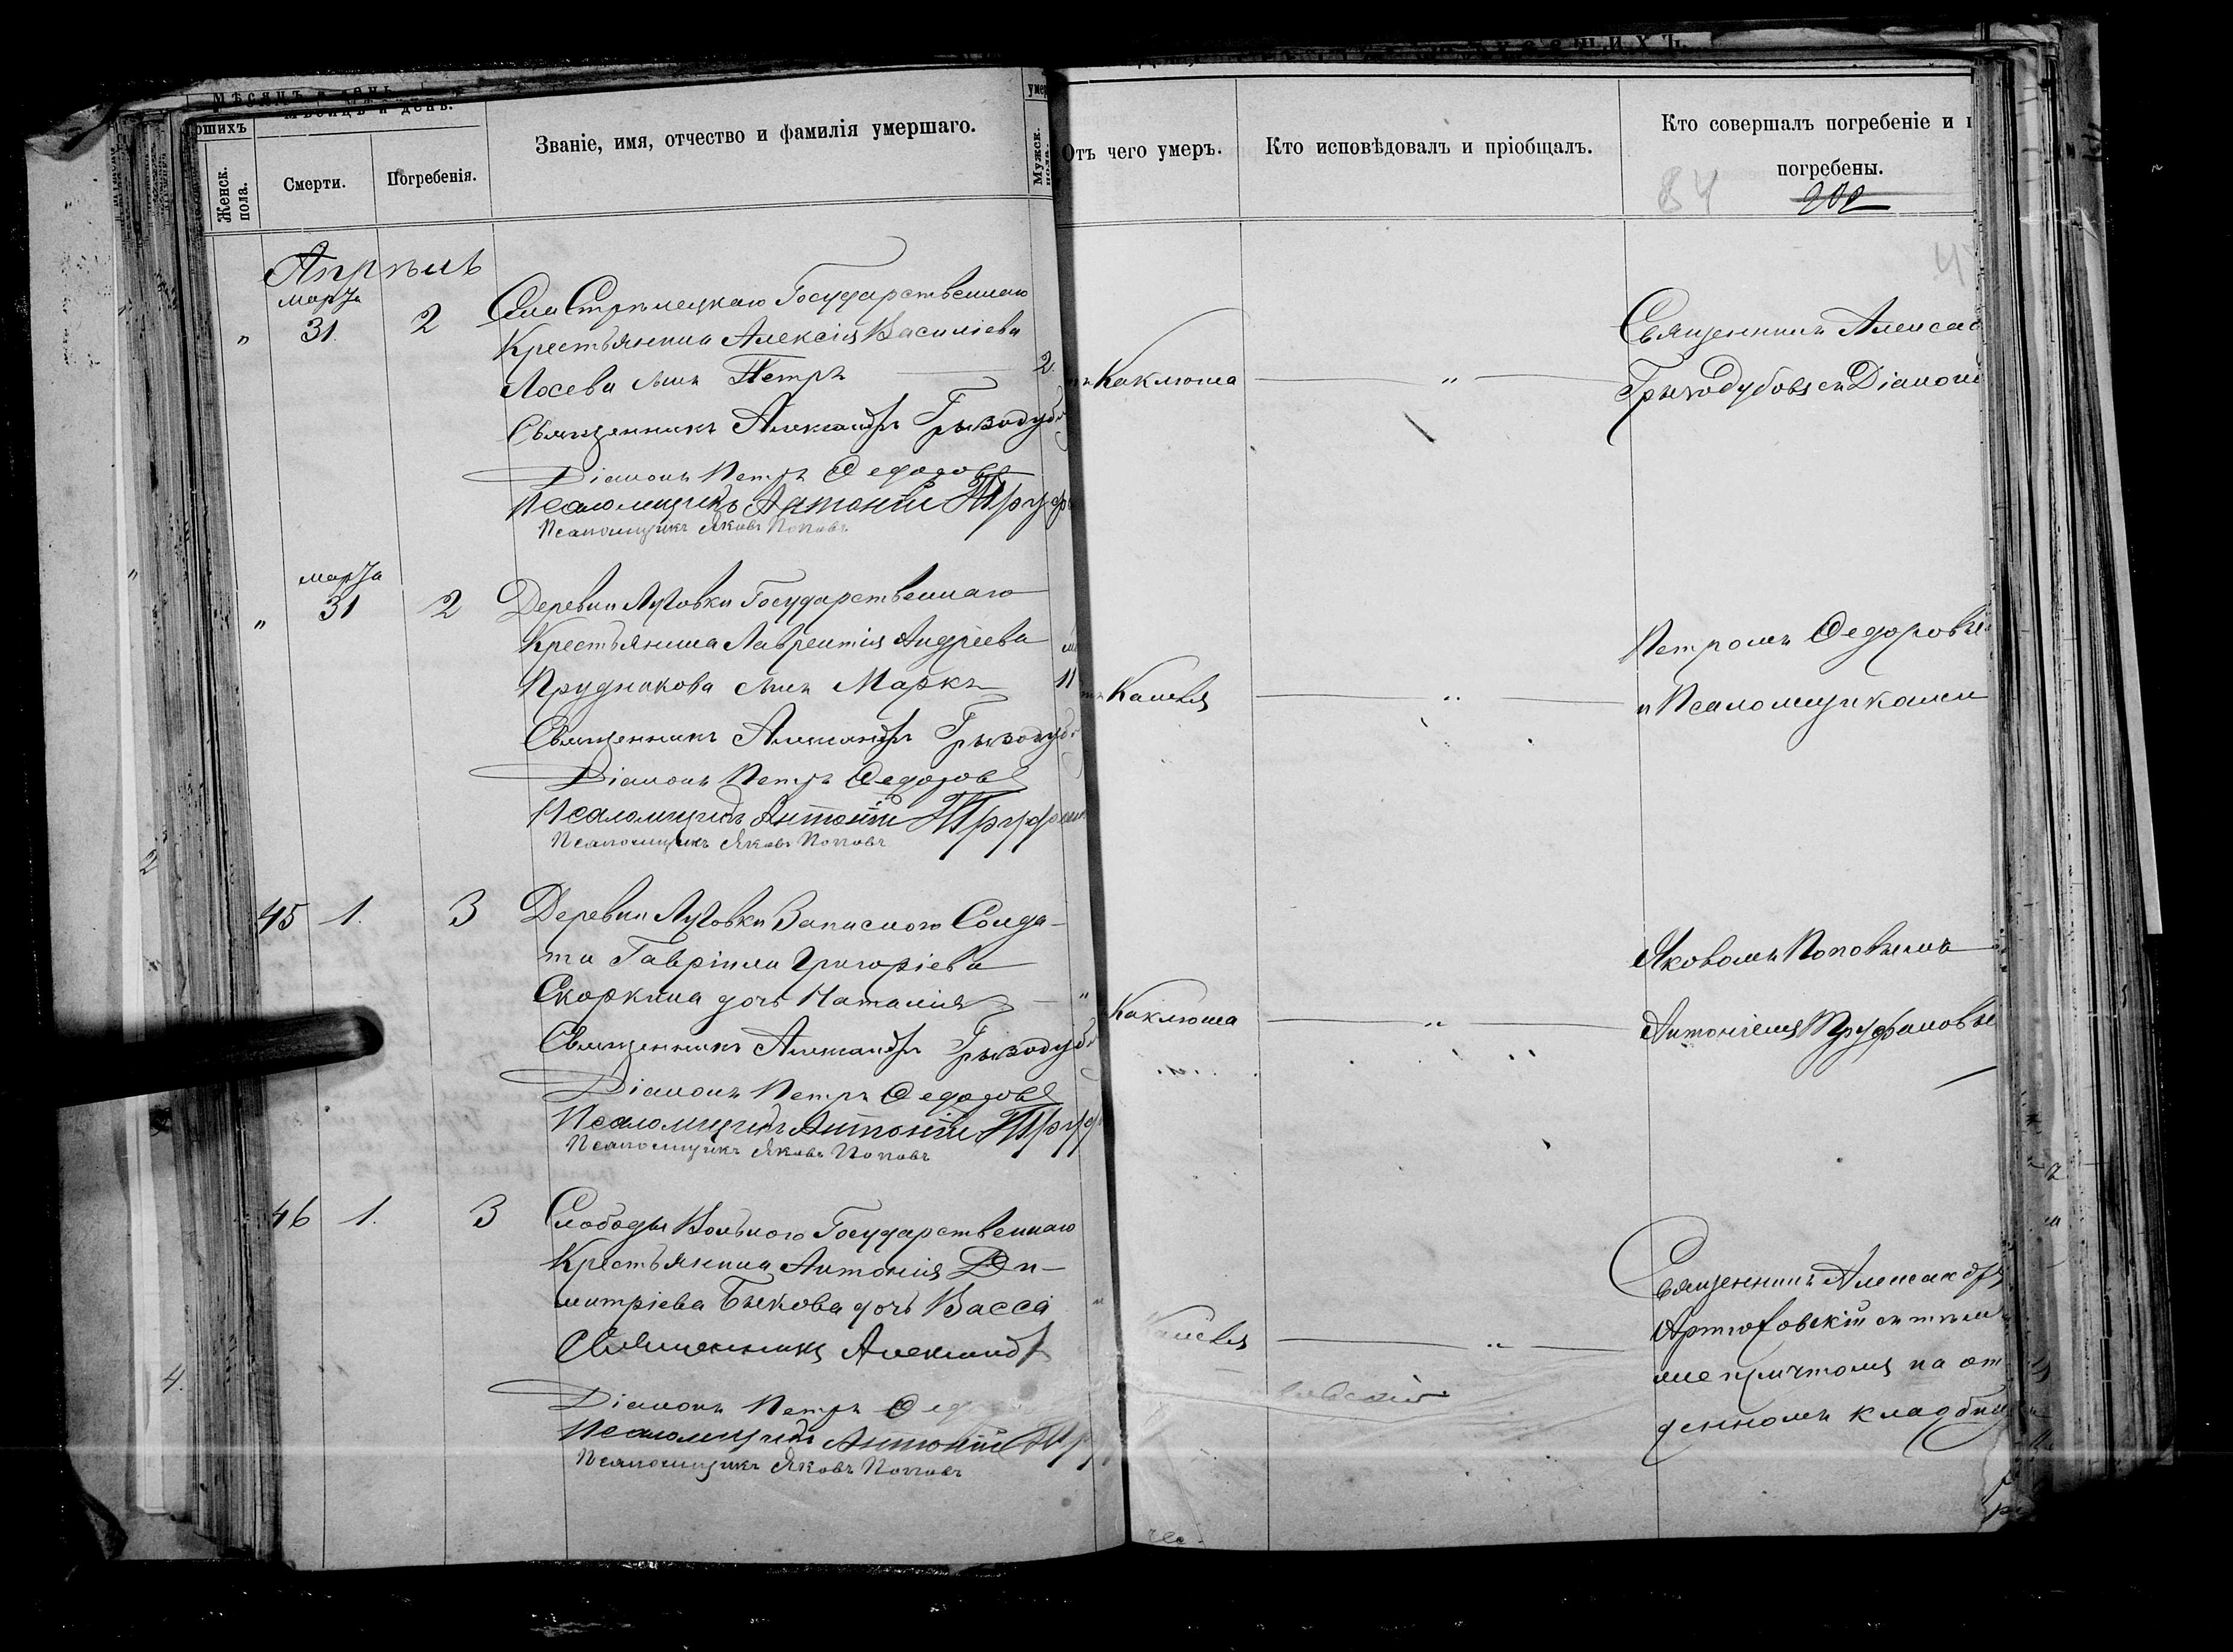 Мѣсяцъ и день.
Званіе, имя, отчество и фамилія умершаго.
Женск. пола.
Смерти.
Погребенія.
Мужск. пола.
Отъ чего умеръ.
Кто исповѣдовалъ и пріобщалъ.
Кто совершалъ погребеніе и
погребены.
84
Апрѣль
марта
" 31. 2 Села Стрѣлецкаго Государственнаго
Крестьянина Алексія Василіева
Лосева сынъ Петръ 2
Священникъ Александръ Грызодуб
Діаконъ Петръ Ѳедоровъ
Псаломщикъ Антоній Труф
Псаломщикъ Яковъ Поповъ
Коклюша "
Священникъ Алекса
Грызодубовъ съ Діакон
марта
" 31 2 Деревни Луговки Государственнаго
Крестьянина Лаврентія Андреева
Прудникова сынъ Маркъ 11
Священникъ Александръ Грызодуб
Діаконъ Петръ Ѳедоровъ
Псаломщикъ Антоній Труфан
Псаломщикъ Яковъ Поповъ
Кашля "
Петромъ Ѳедоровы
и Псаломщиками
45 1. 3 Деревни Луговки Запаснаго Солда-
та Гавріила Григоріева
Скоркина дочь Наталія "
Священникъ Александръ Грызодуб
Діаконъ Петръ Ѳедоровъ
Псаломщикъ Антоній Труф
Псаломщикъ Яковъ Поповъ
Коклюша "
Яковомъ Поповымъ
Антоніемъ Труфановы
46 1. 3 Слободы Вольного Государственнаго
Крестьянина Антонія Ди-
митріева Быкова дочь Васса
Священникъ Александр
Діаконъ Петръ Ѳед
Псаломщикъ Антоній Тр
Псаломщикъ Яковъ Поповъ
Кашля "
Священникъ Александръ
Артюховскій съ тѣм
же причтомъ на от
денномъ кладби